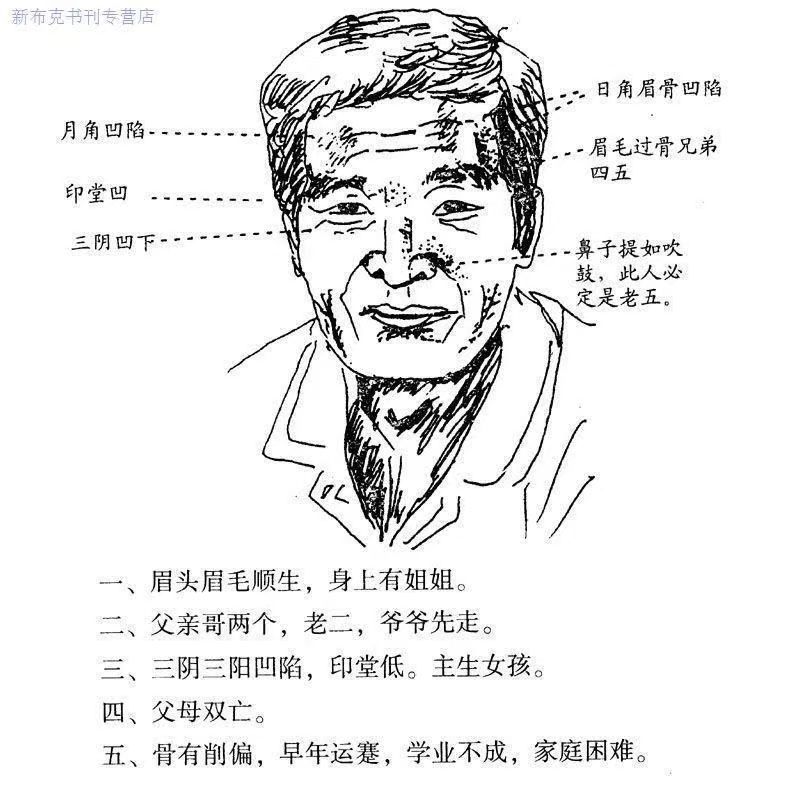 新布克书刊专营店
日角眉骨凹陷
月角凹陷
眉毛过骨兄弟
四五
印堂凹
三阴凹下
鼻子提如吹
鼓，此人必
定是老五。
一、眉头眉毛顺生，身上有姐姐。
二、父亲哥两个，老二，爷爷先走。
三、三阴三阳凹陷，印堂低。主生女孩。
四、父母双亡。
五、骨有削偏，早年运蹇，学业不成，家庭困难。